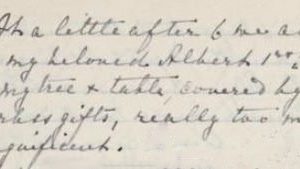 At a little after 6 we a
my beloved Albert 1st,
my tree & table, covered by
rous gifts, really too m
gnificent.